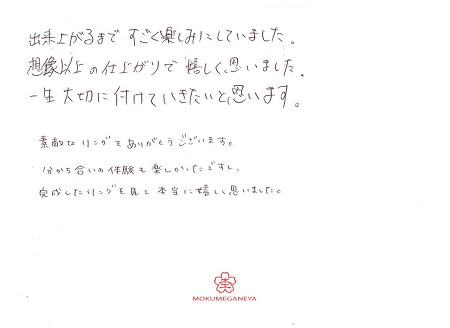 出来上がるまで すごく楽しみにしていました。
想像以上の仕上がりで 嬉しく思いました。
一生大切に付けていきたいと思います。
素敵なリングをありがとうございます。
分かち合いの体験も楽しかったですし、
完成したリングを見て本当に嬉しく思いました。
MOKUMEGANEYA